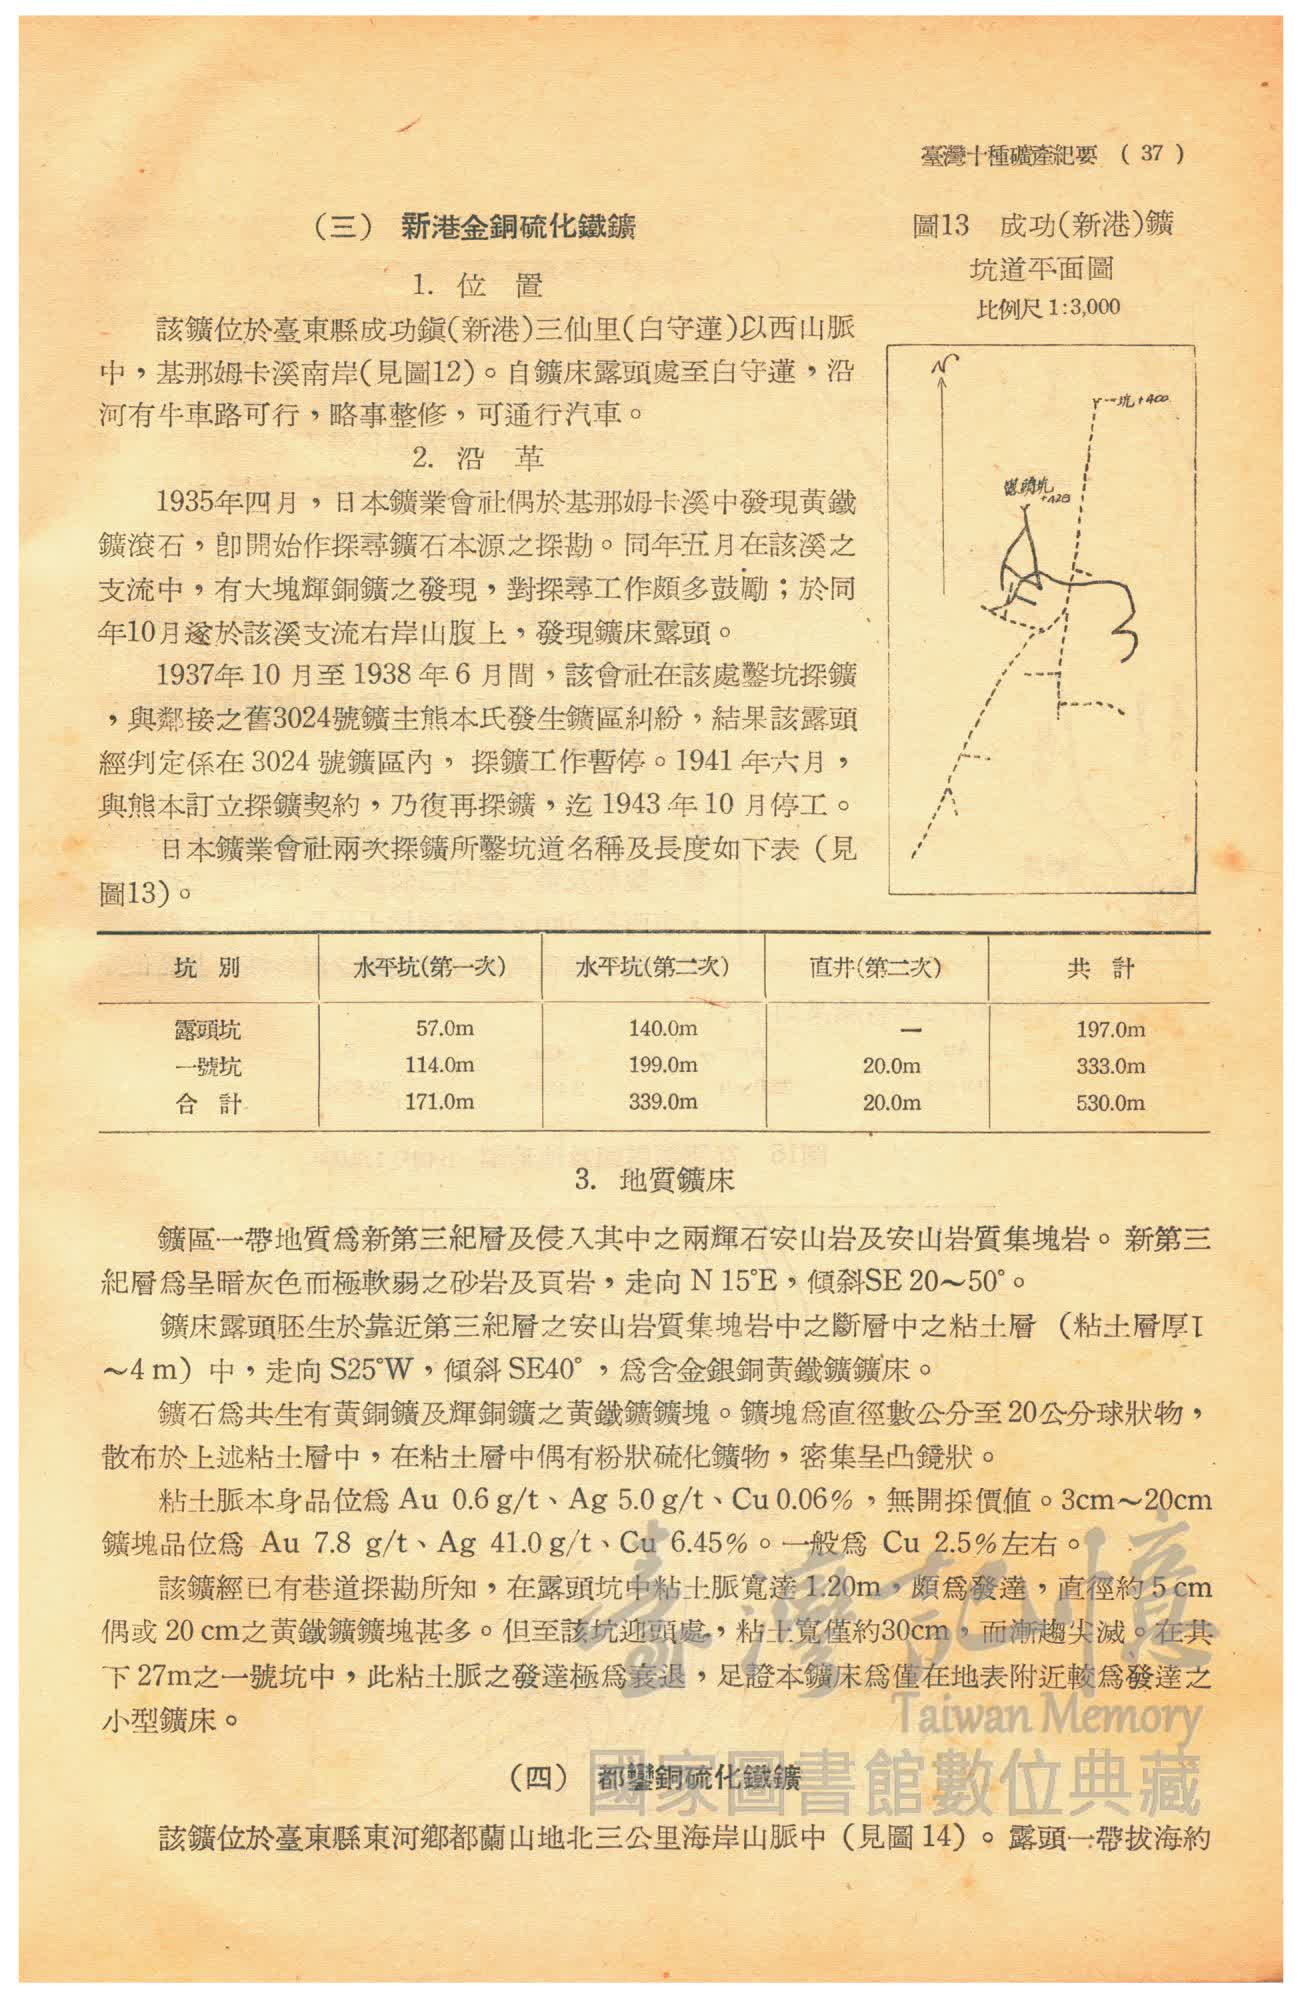 臺灣十種礦產紀要 ( 37 )
(三) 新港金銅硫化鐵鑛
1. 位 置
該鑛位於臺東縣成功鎭(新港)三仙里(白守蓮)以西山脈
中，基那姆卡溪南岸(見圖12)。自鑛床露頭處至白守蓮，沿
河有牛車路可行，略事整修，可通行汽車。
2. 沿 革
1935年四月，日本鑛業會社偶於基那姆卡溪中發現黃鐵
鑛滾石，卽開始作探尋鑛石本源之探勘。同年五月在該溪之
支流中，有大塊輝銅鑛之發現，對探尋工作頗多鼓勵；於同
年10月遂於該溪支流右岸山腹上，發現鑛床露頭。
1937年 10 月至 1938 年 6 月間，該會社在該處鑿坑探鑛
，與鄰接之舊3024號鑛主熊本氏發生鑛區糾紛，結果該露頭
經判定係在 3024 號鑛區內， 探鑛工作暫停。1941 年六月，
與熊本訂立探鑛契約，乃復再探鑛，迄 1943 年 10 月停工。
日本鑛業會社兩次探鑛所鑿坑道名稱及長度如下表（見
圖13)。
圖13 成功(新港)鑛
坑道平面圖
比例尺 1:3,000
N
一坑 +400
露頭坑
+428
坑 別 水平坑(第一次) 水平坑(第二次) 直井(第二次) 共 計
露頭坑 57.0m 140.0m — 197.0m
一號坑 114.0m 199.0m 20.0m 333.0m
合 計 171.0m 339.0m 20.0m 530.0m
3. 地質鑛床
鑛區一帶地質爲新第三紀層及侵入其中之兩輝石安山岩及安山岩質集塊岩。 新第三
紀層爲呈暗灰色而極軟弱之砂岩及頁岩，走向 N 15°E，傾斜SE 20～50°。
鑛床露頭胚生於靠近第三紀層之安山岩質集塊岩中之斷層中之粘土層 （粘土層厚1
～4 m）中，走向 S25°W，傾斜 SE40° ，爲含金銀銅黃鐵鑛鑛床。
鑛石爲共生有黃銅鑛及輝銅鑛之黃鐵鑛鑛塊。鑛塊爲直徑數公分至20公分球狀物，
散布於上述粘土層中，在粘土層中偶有粉狀硫化鑛物，密集呈凸鏡狀。
粘土脈本身品位爲 Au 0.6 g/t、Ag 5.0 g/t、Cu 0.06%，無開採價値。3cm～20cm
鑛塊品位爲 Au 7.8 g/t、Ag 41.0 g/t、Cu 6.45%。一般爲 Cu 2.5%左右。
該鑛經已有巷道探勘所知，在露頭坑中粘土脈寬達 1.20m，頗爲發達，直徑約 5 cm
偶或 20 cm之黃鐵鑛鑛塊甚多。但至該坑迎頭處，粘土寬僅約30cm，而漸趨尖滅。在其
下 27m之一號坑中，此粘土脈之發達極爲衰退，足證本鑛床爲僅在地表附近較爲發達之
小型鑛床。
(四) 都鑾銅硫化鐵鑛
該鑛位於臺東縣東河鄉都蘭山地北三公里海岸山脈中（見圖 14）。露頭一帶拔海約
臺灣記憶
Taiwan Memory
國家圖書館數位典藏